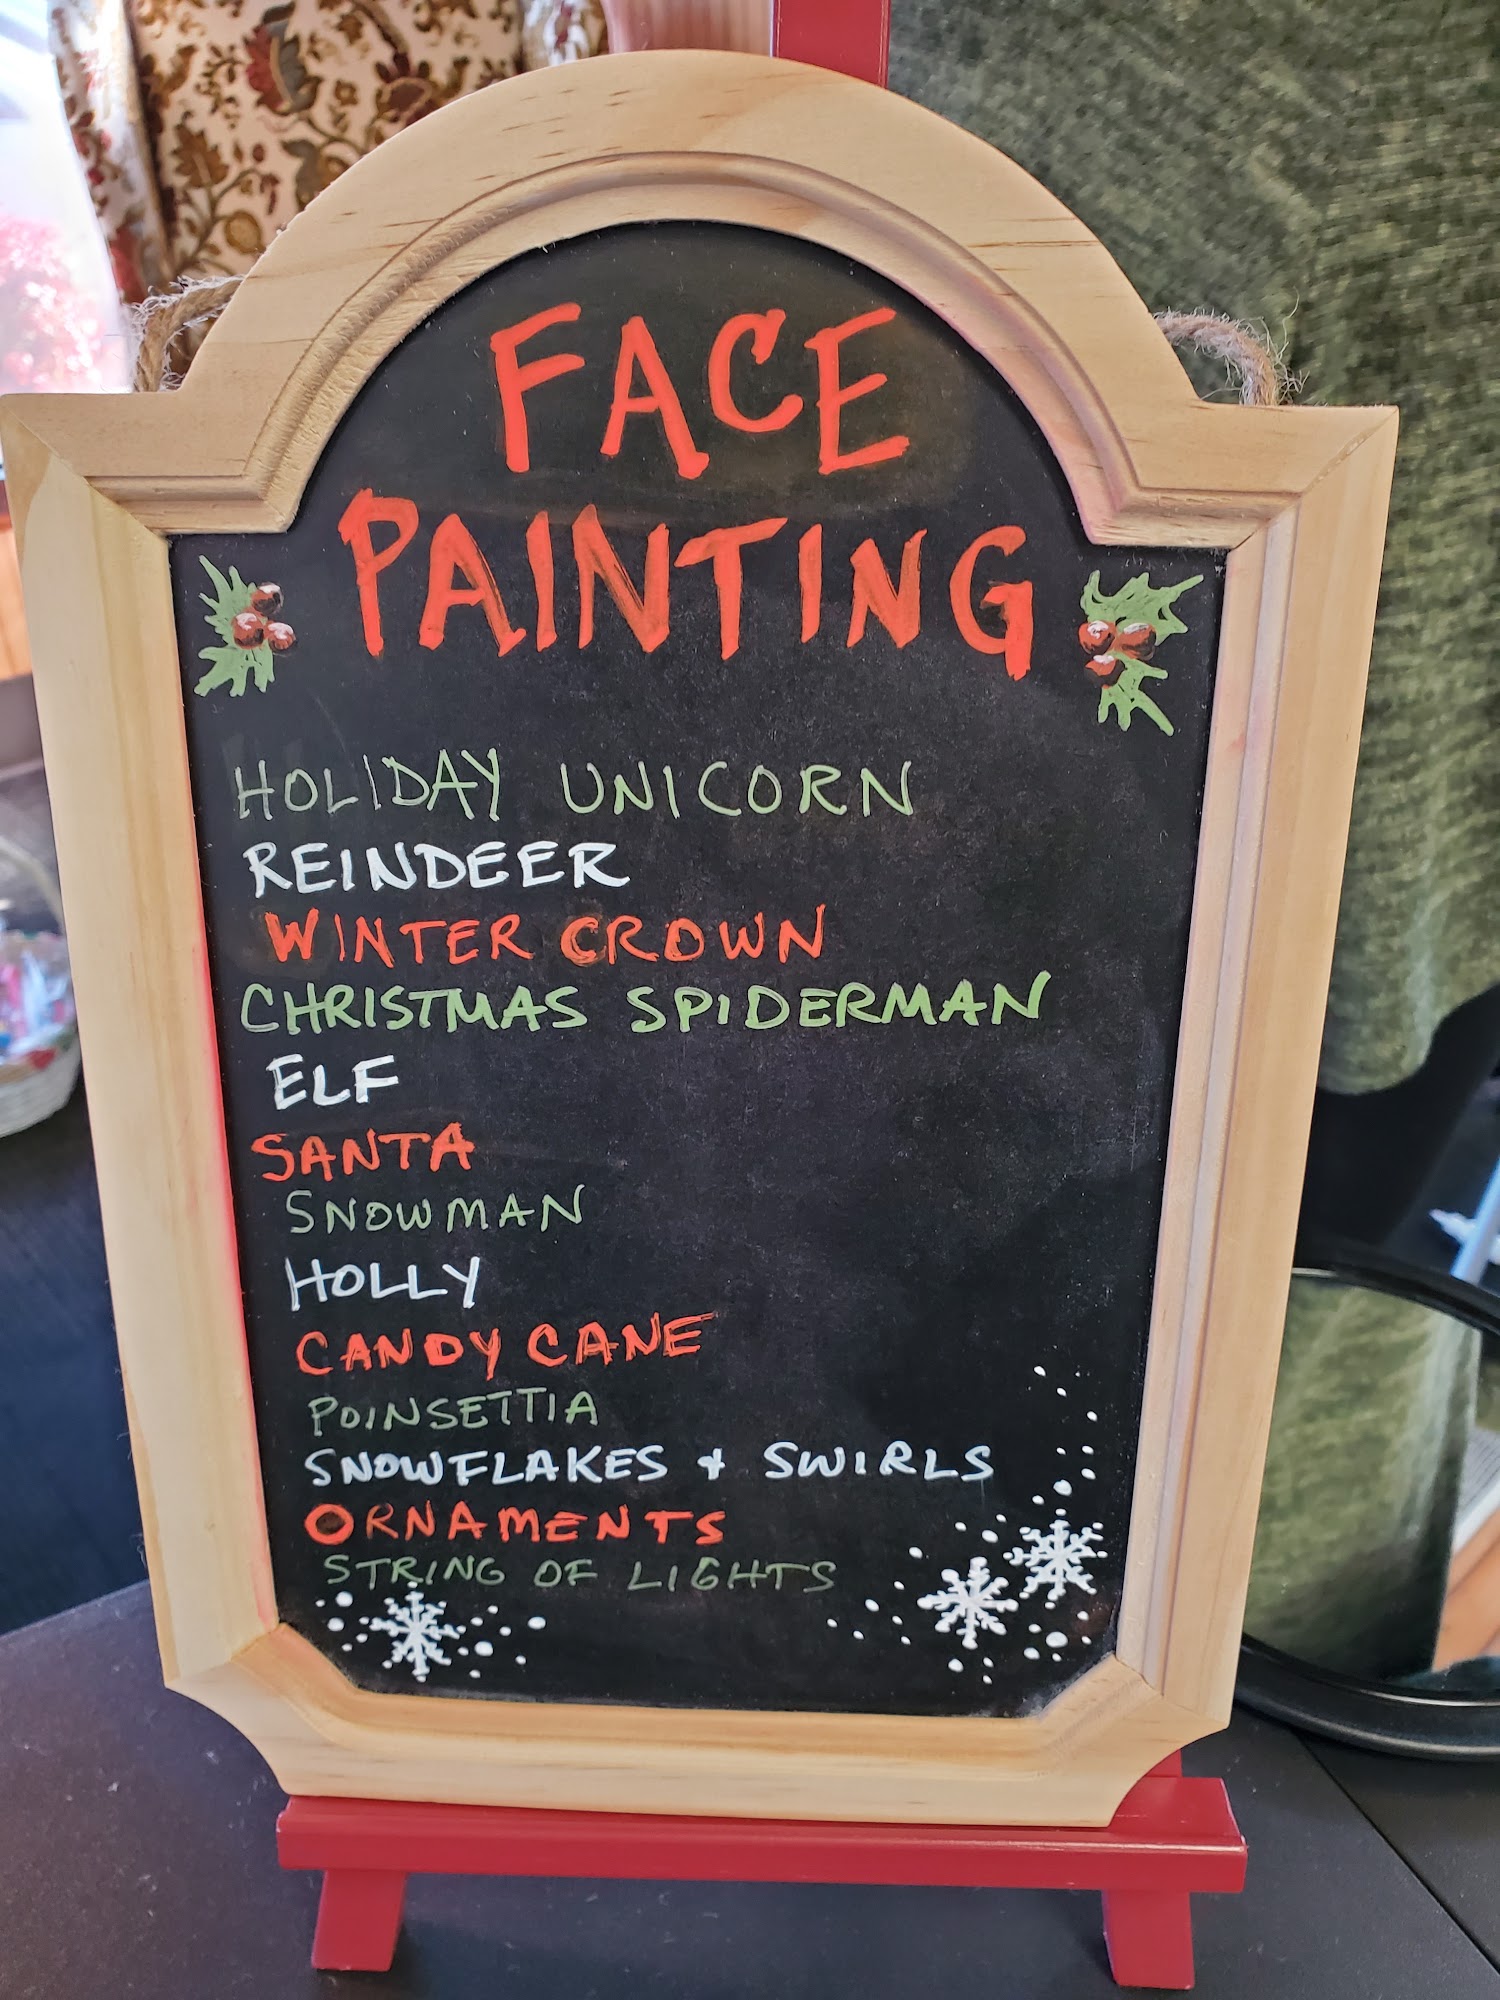 FACE
PAINTING
HOLIDAY UNICORN
REINDEER
WINTER CROWN
CHRISTMAS SPIDERMAN
ELF
SANTA
SNOWMAN
HOLLY
CANDY CANE
POINSETTIA
SNOWFLAKES + SWIRLS
ORNAMENTS
STRING OF LIGHTS